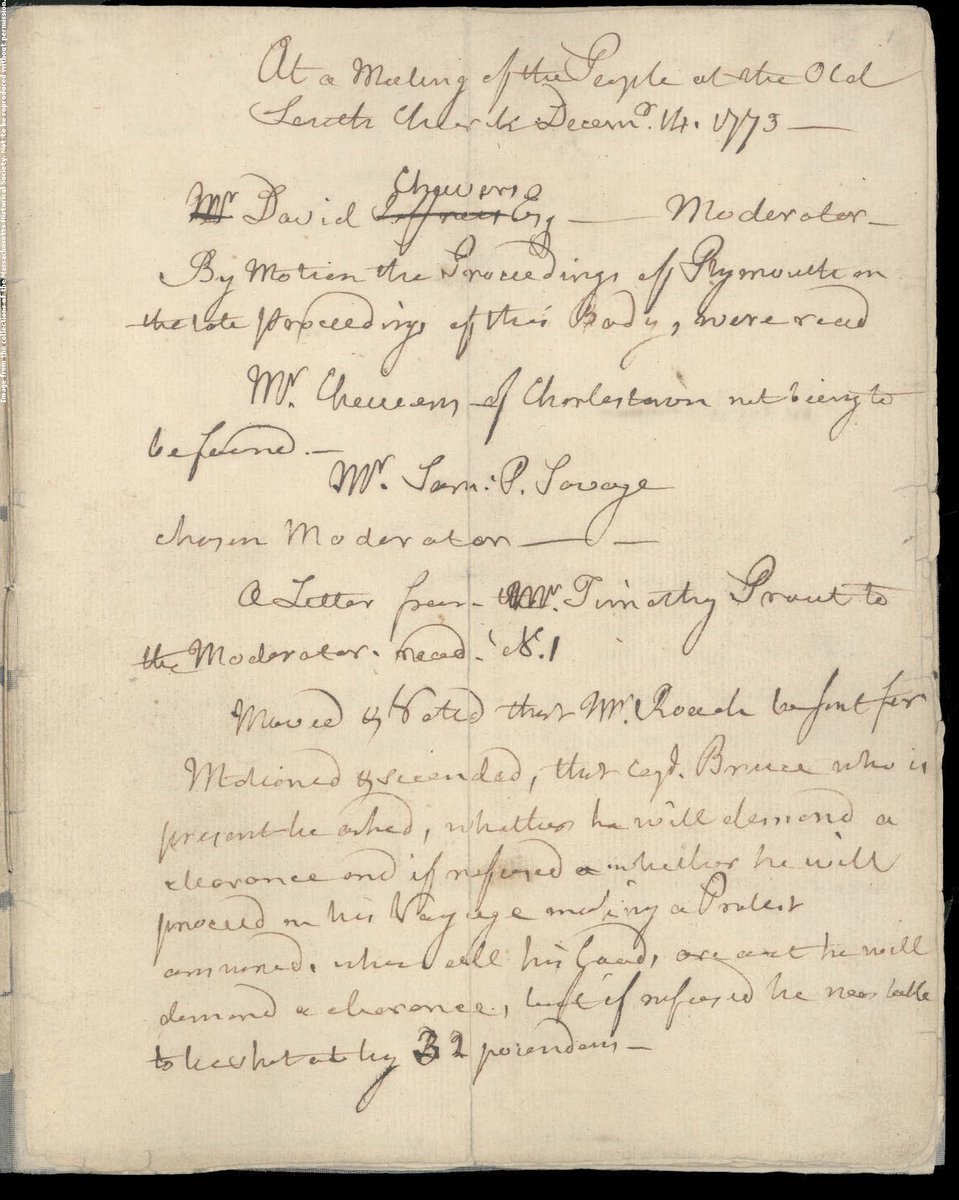 At a Meeting of the People at the Old
South Church Decemr. 14. 1773 —
Chevers
Mr David Jeffries Esq —— Moderator —
By Motion the Proceedings of Plymouth on
the late proceedings of this Body, were read
Mr. Cheevers of Charlestown not being to
be found. —
Mr. Sam: P. Savage
chosen Moderator —— —
A Letter from Mr. Timothy Prout to
the Moderator. read. N. 1
Moved & Voted that Mr. Roach be sent for
Motioned & seconded, that Capt. Bruce who is
present be asked, whether he will demand a
clearance and if refused whether he will
proceed on his Voyage making a Protest
answered, when all his Goods are out he will
demand a clearance, but if refused he
to be shot at by 32 pounders —
Image from the collections of the Massachusetts Historical Society. Not to be reproduced without permission.